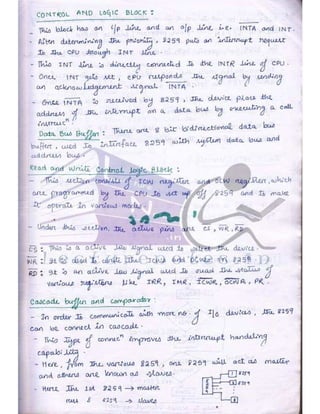 CONTROL AND LOGIC BLOCK :
- This block has an i/p line and an o/p line i.e. INTA and INT.
- After determining the priority, 8259 puts an interrupt request
to the CPU through INT line.
- This INT line is directly connected to the INTR line of CPU.
- Once INT gets set, CPU responds the signal by sending
an acknowledgement signal INTA
- Once INTA is received by 8259, the device places the
address of the interrupt on a data bus by executing a call
instruct^n.
Data Bus Buffer : There are 8 bit bidirectional data bus
buffer, used to interface 8259 with system data bus and
address bus.
Read and write Control Logic Block :
- This section consists of ICW register and OCW register, which
are programmed by the CPU to set up 8259 and to make
it operate in various modes
- Under this section, the active pins are CS, WR, RD
CS : This is a active low signal used to the device.
WR : It is used to write the ICWs and OCWs in 8259
RD : It is an active low signal used to read the status of
various registers like IRR, IMR, ICWR, OCWR, PR.
Cascade buffer and comparator :
- In order to communicate with more no. of I/O devices, the 8259
can be connect in cascade.
- This type of connec^n improves the interrupt handling
capability.
- Here, from the various 8259, one 8259 will act as master
and others are known as slaves.
- Here the 1st 8259 → master
8259 → slaves
8259
8259